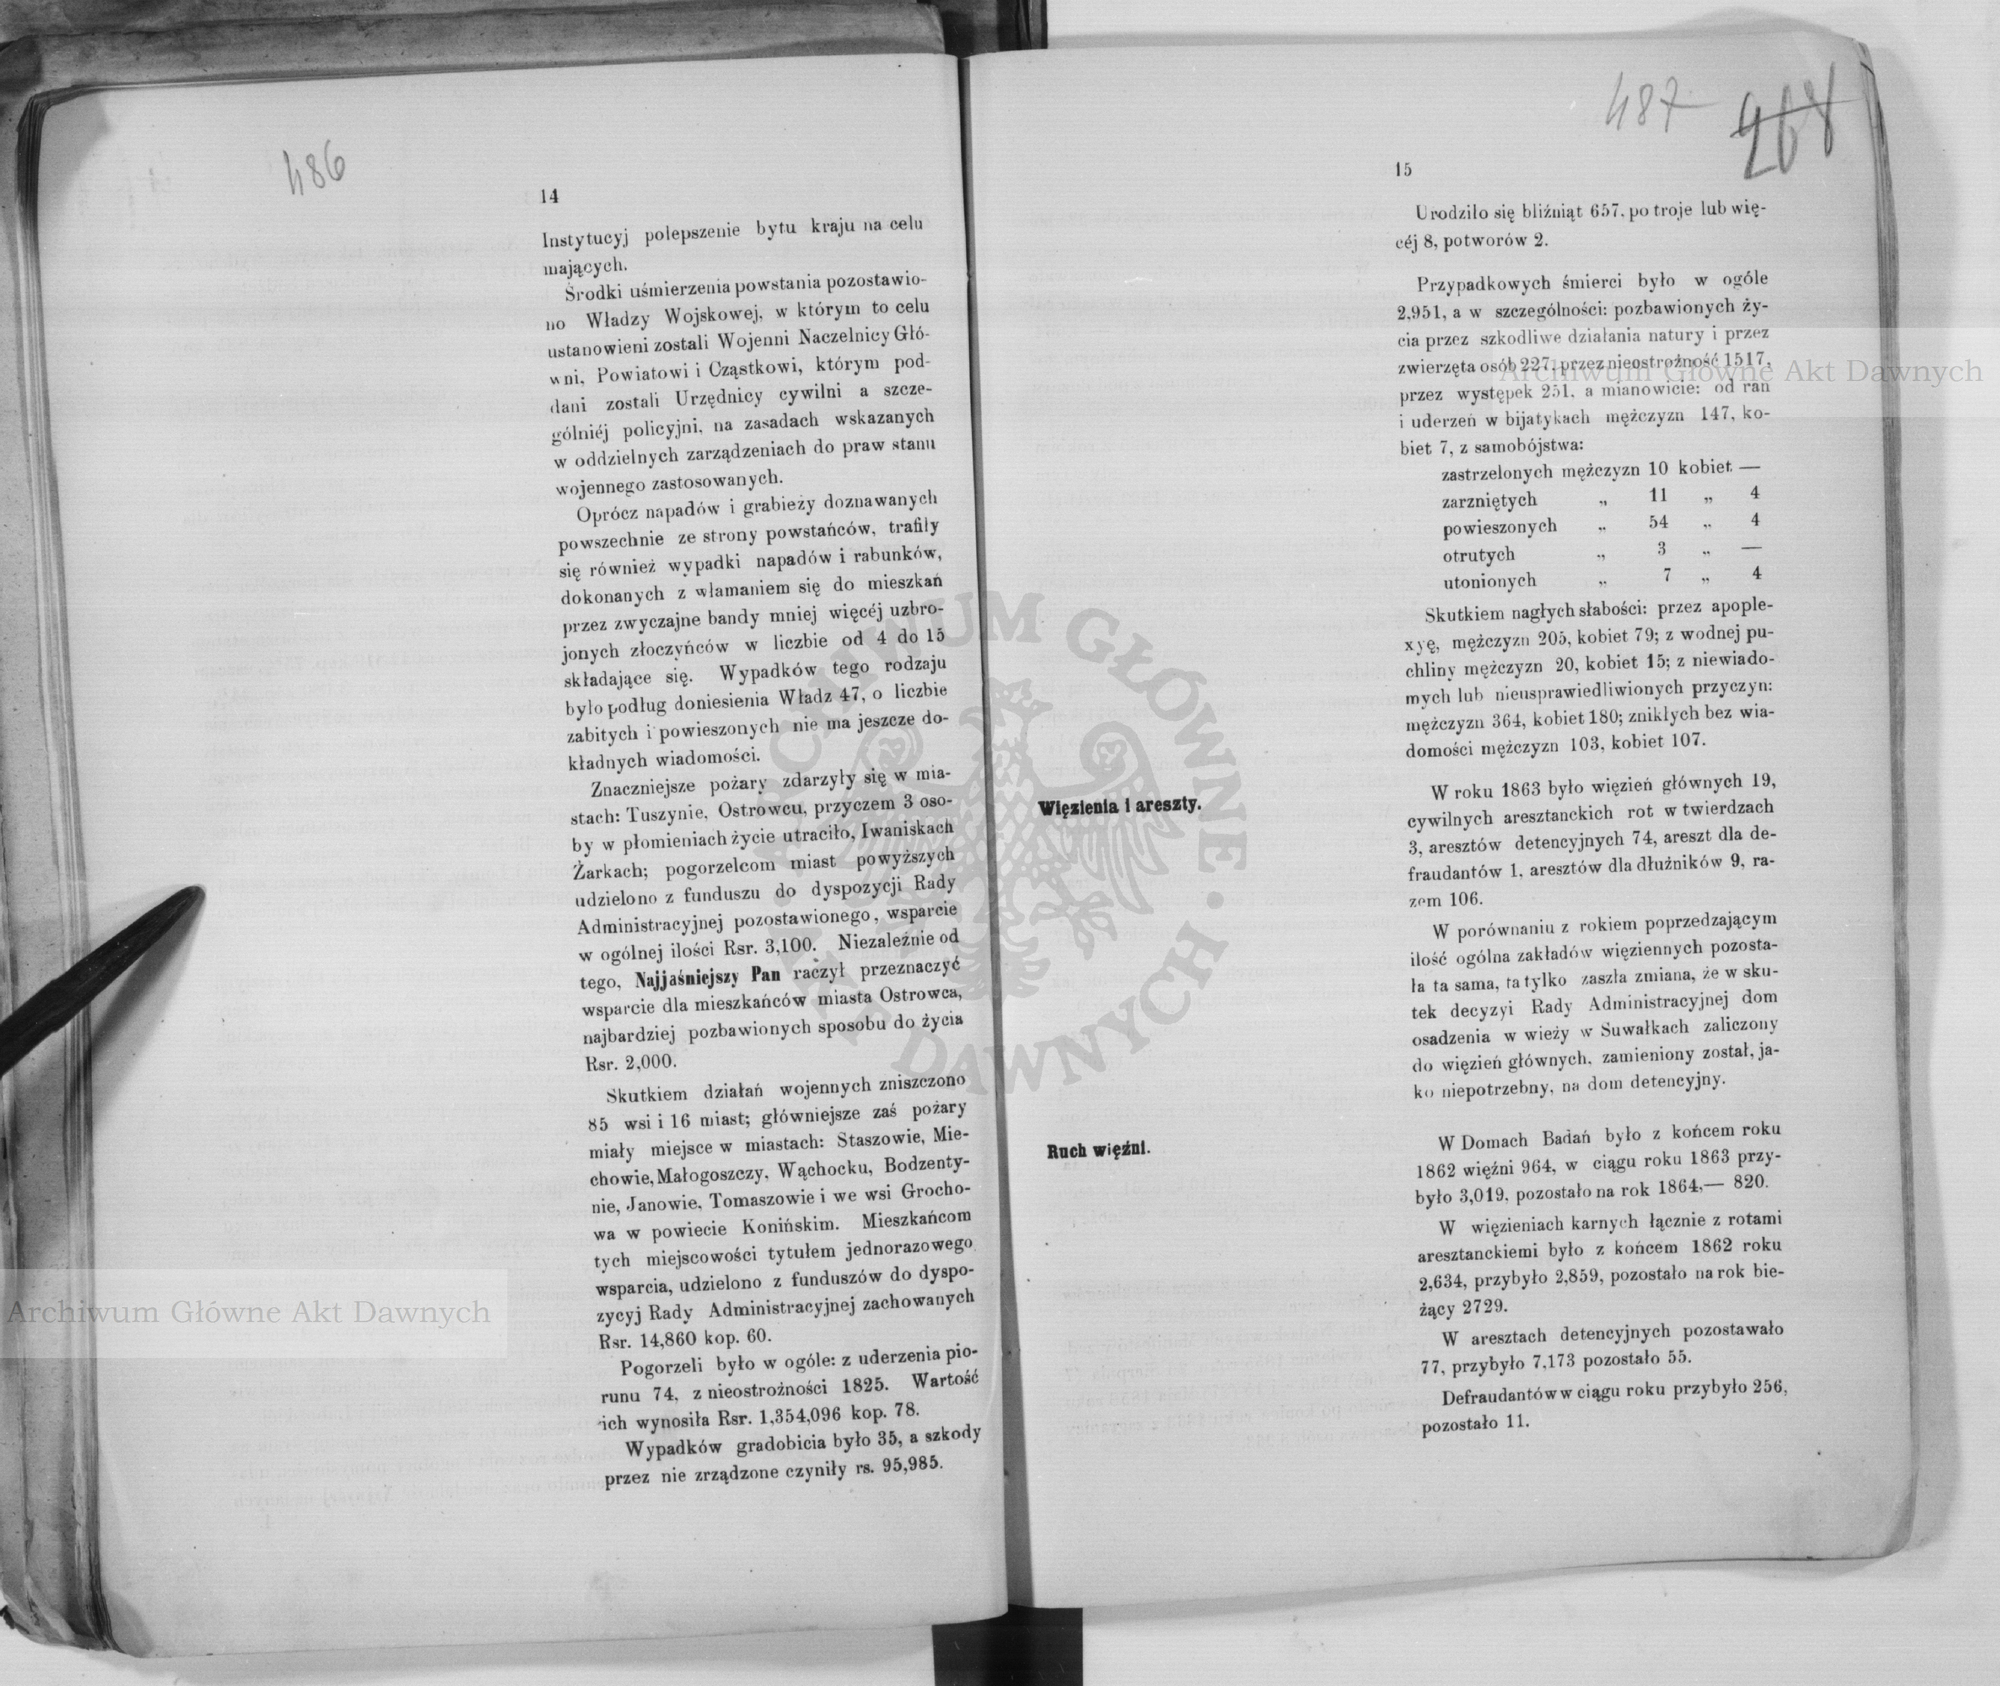 486
14
Instytucyj polepszenie bytu kraju na celu
mających.
Środki uśmierzenia powstania pozostawio-
no Władzy Wojskowej, w którym to celu
ustanowieni zostali Wojenni Naczelnicy Głó-
wni, Powiatowi i Cząstkowi, którym pod-
dani zostali Urzędnicy cywilni a szcze-
gólniéj policyjni, na zasadach wskazanych
w oddzielnych zarządzeniach do praw stanu
wojennego zastosowanych.
Oprócz napadów i grabieży doznawanych
powszechnie ze strony powstańców, trafiły
się również wypadki napadów i rabunków,
dokonanych z włamaniem się do mieszkań
przez zwyczajne bandy mniej więcéj uzbro-
jonych złoczyńców w liczbie od 4 do 15
składające się. Wypadków tego rodzaju
było podług doniesienia Władz 47, o liczbie
zabitych i powieszonych nie ma jeszcze do-
kładnych wiadomości.
Znaczniejsze pożary zdarzyły się w mia-
stach: Tuszynie, Ostrowcu, przyczem 3 oso-
by w płomieniach życie utraciło, Iwaniskach
Żarkach; pogorzelcom miast powyższych
udzielono z funduszu do dyspozycji Rady
Administracyjnej pozostawionego, wsparcie
w ogólnej ilości Rsr. 3,100. Niezależnie od
tego, Najjaśniejszy Pan raczył przeznaczyć
wsparcie dla mieszkańców miasta Ostrowca,
najbardziej pozbawionych sposobu do życia
Rsr. 2,000.
Skutkiem działań wojennych zniszczono
85 wsi i 16 miast; główniejsze zaś pożary
miały miejsce w miastach: Staszowie, Mie-
chowie, Małogoszczy, Wąchocku, Bodzenty-
nie, Janowie, Tomaszowie i we wsi Grocho-
wa w powiecie Konińskim. Mieszkańcom
tych miejscowości tytułem jednorazowego
wsparcia, udzielono z funduszów do dyspo-
zycyj Rady Administracyjnej zachowanych
Rsr. 14,860 kop. 60.
Pogorzeli było w ogóle: z uderzenia pio-
runu 74, z nieostrożności 1825. Wartość
ich wynosiła Rsr. 1,354,096 kop. 78.
Wypadków gradobicia było 35, a szkody
przez nie zrządzone czyniły rs. 95,985.
487
15
Urodziło się bliźniąt 657, po troje lub wię-
céj 8, potworów 2.
Przypadkowych śmierci było w ogóle
2,951, a w szczególności: pozbawionych ży-
cia przez szkodliwe działania natury i przez
zwierzęta osób 227, przez nieostrożność 1517,
przez występek 251, a mianowicie: od ran
i uderzeń w bijatykach mężczyzn 147, ko-
biet 7, z samobójstwa:
zastrzelonych mężczyzn 10 kobiet —
zarzniętych „ 11 „ 4
powieszonych „ 54 „ 4
otrutych „ 3 „ —
utonionych „ 7 „ 4
Skutkiem nagłych słabości: przez apople-
xyę, mężczyzn 205, kobiet 79; z wodnej pu-
chliny mężczyzn 20, kobiet 15; z niewiado-
mych lub nieusprawiedliwionych przyczyn:
mężczyzn 364, kobiet 180; znikłych bez wia-
domości mężczyzn 103, kobiet 107.
Więzienia i areszty.
W roku 1863 było więzień głównych 19,
cywilnych aresztanckich rot w twierdzach
3, aresztów detencyjnych 74, areszt dla de-
fraudantów 1, aresztów dla dłużników 9, ra-
zem 106.
W porównaniu z rokiem poprzedzającym
ilość ogólna zakładów więziennych pozosta-
ła ta sama, ta tylko zaszła zmiana, że w sku-
tek decyzyi Rady Administracyjnej dom
osadzenia w wieży w Suwałkach zaliczony
do więzień głównych, zamieniony został, ja-
ko niepotrzebny, na dom detencyjny.
Ruch więźni.
W Domach Badań było z końcem roku
1862 więźni 964, w ciągu roku 1863 przy-
było 3,019, pozostało na rok 1864,— 820.
W więzieniach karnych łącznie z rotami
aresztanckiemi było z końcem 1862 roku
2,634, przybyło 2,859, pozostało na rok bie-
żący 2729.
W aresztach detencyjnych pozostawało
77, przybyło 7,173 pozostało 55.
Defraudantów w ciągu roku przybyło 256,
pozostało 11.
Archiwum Główne Akt Dawnych
Archiwum Główne Akt Dawnych
ARCHIWUM GŁÓWNE · AKT DAWNYCH ·